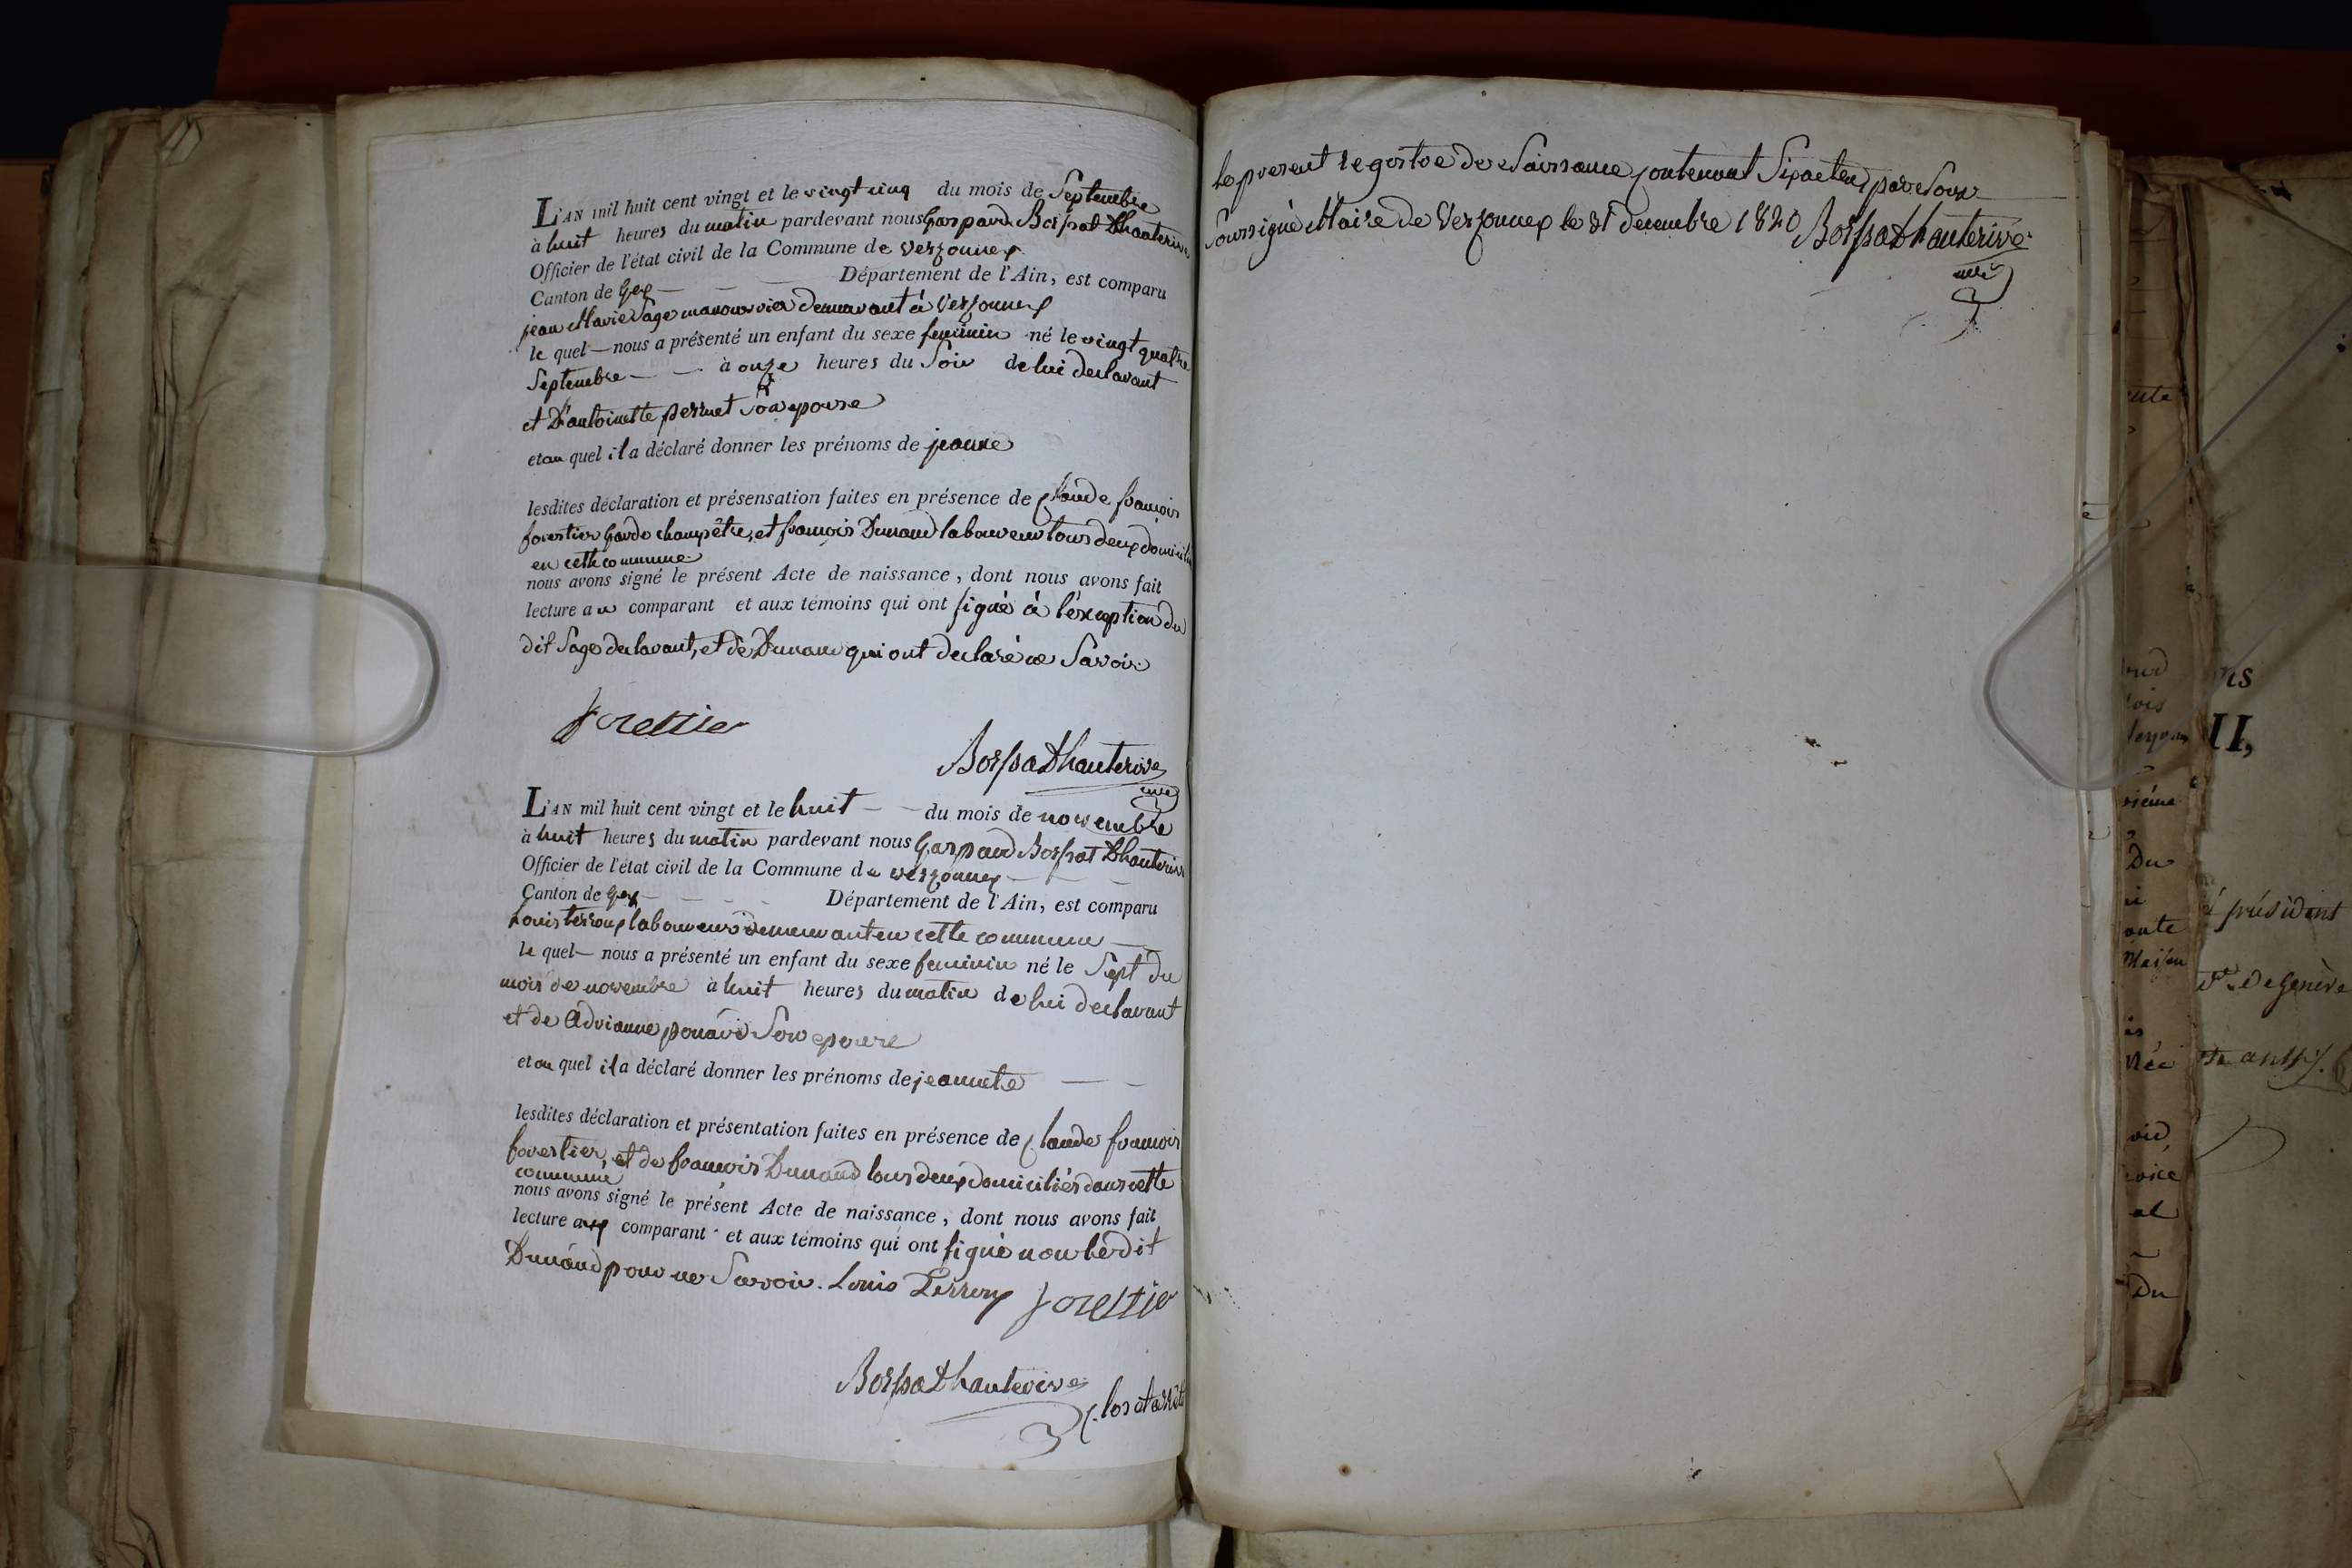 L'AN mil huit cent vingt et le vingt cinq du mois de Septembre
à huit heures du matin pardevant nous Gaspard Bossat Dhauterive
Officier de l'état civil de la Commune de Versonnex
Canton de Gex — — — Département de l'Ain, est comparu
jean Marie Sage manouvrier demeurant à Versonnex
le quel — nous a présenté un enfant du sexe feminin né le vingt quatre
Septembre — — à onze heures du Soir de lui declarant
et D'antoinette perret Son epouse
et au quel il a déclaré donner les prénoms de jeanne
lesdites déclaration et présensation faites en présence de Claude françois
forestier garde champêtre, et françois Dunand laboureur tous deux domicilié
en cette commune
nous avons signé le présent Acte de naissance, dont nous avons fait
lecture au comparant et aux témoins qui ont signé à l'éxception du
dit Sage declarant, et de Dunand qui ont declaré ne Savoir
forestier
Bossat Dhauterive
L'AN mil huit cent vingt et le huit — — du mois de novembre
à huit heures du matin pardevant nous Gaspard Bossat Dhauterive
Officier de l'état civil de la Commune de versonnex — — —
Canton de Gex — — — Département de l'Ain, est comparu
Louis terroux laboureur demeurant en cette commune —
le quel — nous a présenté un enfant du sexe feminin né le Sept du
mois de novembre à huit heures du matin de lui declarant
et de Adrianne Son epouse
et au quel il a déclaré donner les prénoms de jeannete — —
lesdites déclaration et présentation faites en présence de Claude françois
forestier, et de françois Dunand tous deux domiciliés dans cette
commune
nous avons signé le présent Acte de naissance, dont nous avons fait
lecture aux comparant et aux témoins qui ont signé non lédit
Dunand pour ne Savoir. Louis Terroux forestier
Bossat Dhauterive
Clos et arrêté
le present registre de Naissance contenant Six actes par Nous
Soussigné Maire de Versonnex le 31 decembre 1820 Bossat Dhauterive
mre
ns
II,
président
De Genève